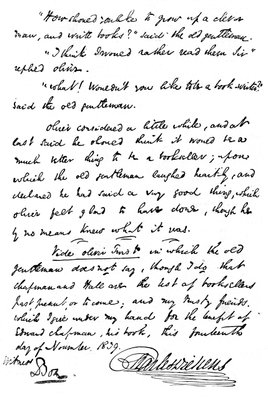 "How should you like to grow up a clever
man, and write books?" said the old gentleman.
"I think I would rather read them Sir"
replied oliver.
"What! Wouldn't you like to be a book-writer?"
said the old gentleman.
Oliver considered a little while, and at
last said he should think it would be a
much better thing to be a bookseller; upon
which the old gentleman laughed heartily, and
declared he had said a very good thing, which
oliver felt glad to have done, though he
by no means knew what it was.
Vide Oliver Twist in which the old
gentleman does not say, though I do that
Chapman and Hall are the best of booksellers
past present, or to come; and my trusty friends.
which I give under my hand for the benefit of
Edward Chapman, his book, this fourteenth
day of November 1839.
Witness
Boz
Charles Dickens